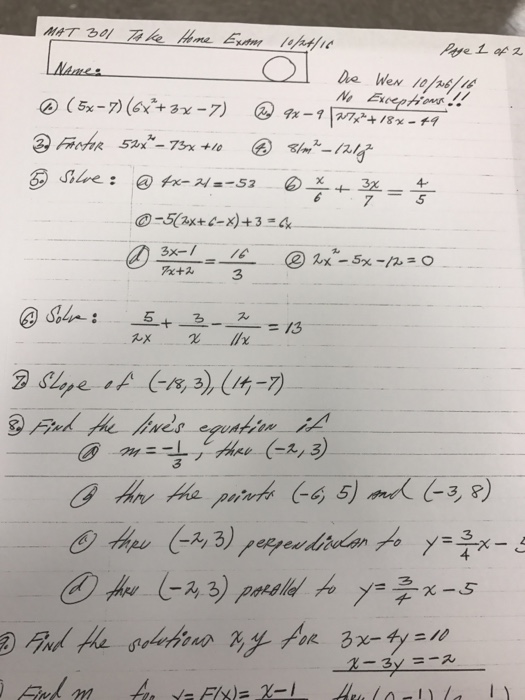 MAT 301 Take Home Exam 10/24/16
Page 1 of 2
Name:
Due Wen 10/26/16
No Exceptions!!
① (5x-7)(6x²+3x-7) ② 9x-9 √27x²+18x-49
③ Factor 52x²-73x+10 ④ 81m²-121g²
⑤ Solve: ⓐ 4x-21=-53 ⓑ x/6 + 3x/7 = 4/5
ⓒ -5(2x+6-x)+3=6x
ⓓ (3x-1)/(7x+2) = 16/3 ⓔ 2x²-5x-12=0
⑥ Solve: 5/2x + 3/x - 2/11x = 13
⑦ Slope of (-18, 3), (14, -7)
⑧ Find the line's equation if
ⓐ m=-1/3, thru (-2, 3)
ⓑ thru the points (-6, 5) and (-3, 8)
ⓒ thru (-2, 3) perpendicular to y=3/4x-5
ⓓ thru (-2, 3) parallel to y=3/4x-5
9. Find the solutions x,y for 3x-4y=10
x-3y=-2
Find m for y=F(x)= x-1 thru (0,-1)